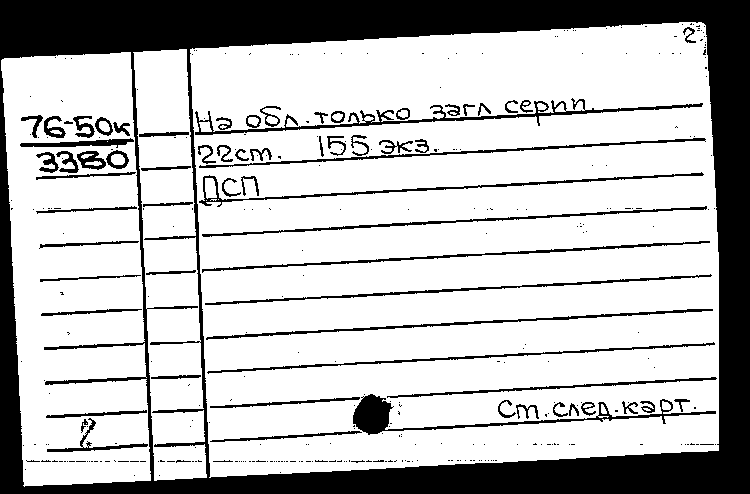 2
76-50к
3380
На обл. только загл серии.
22ст. 155 экз.
ДСП
2
См. след. карт.